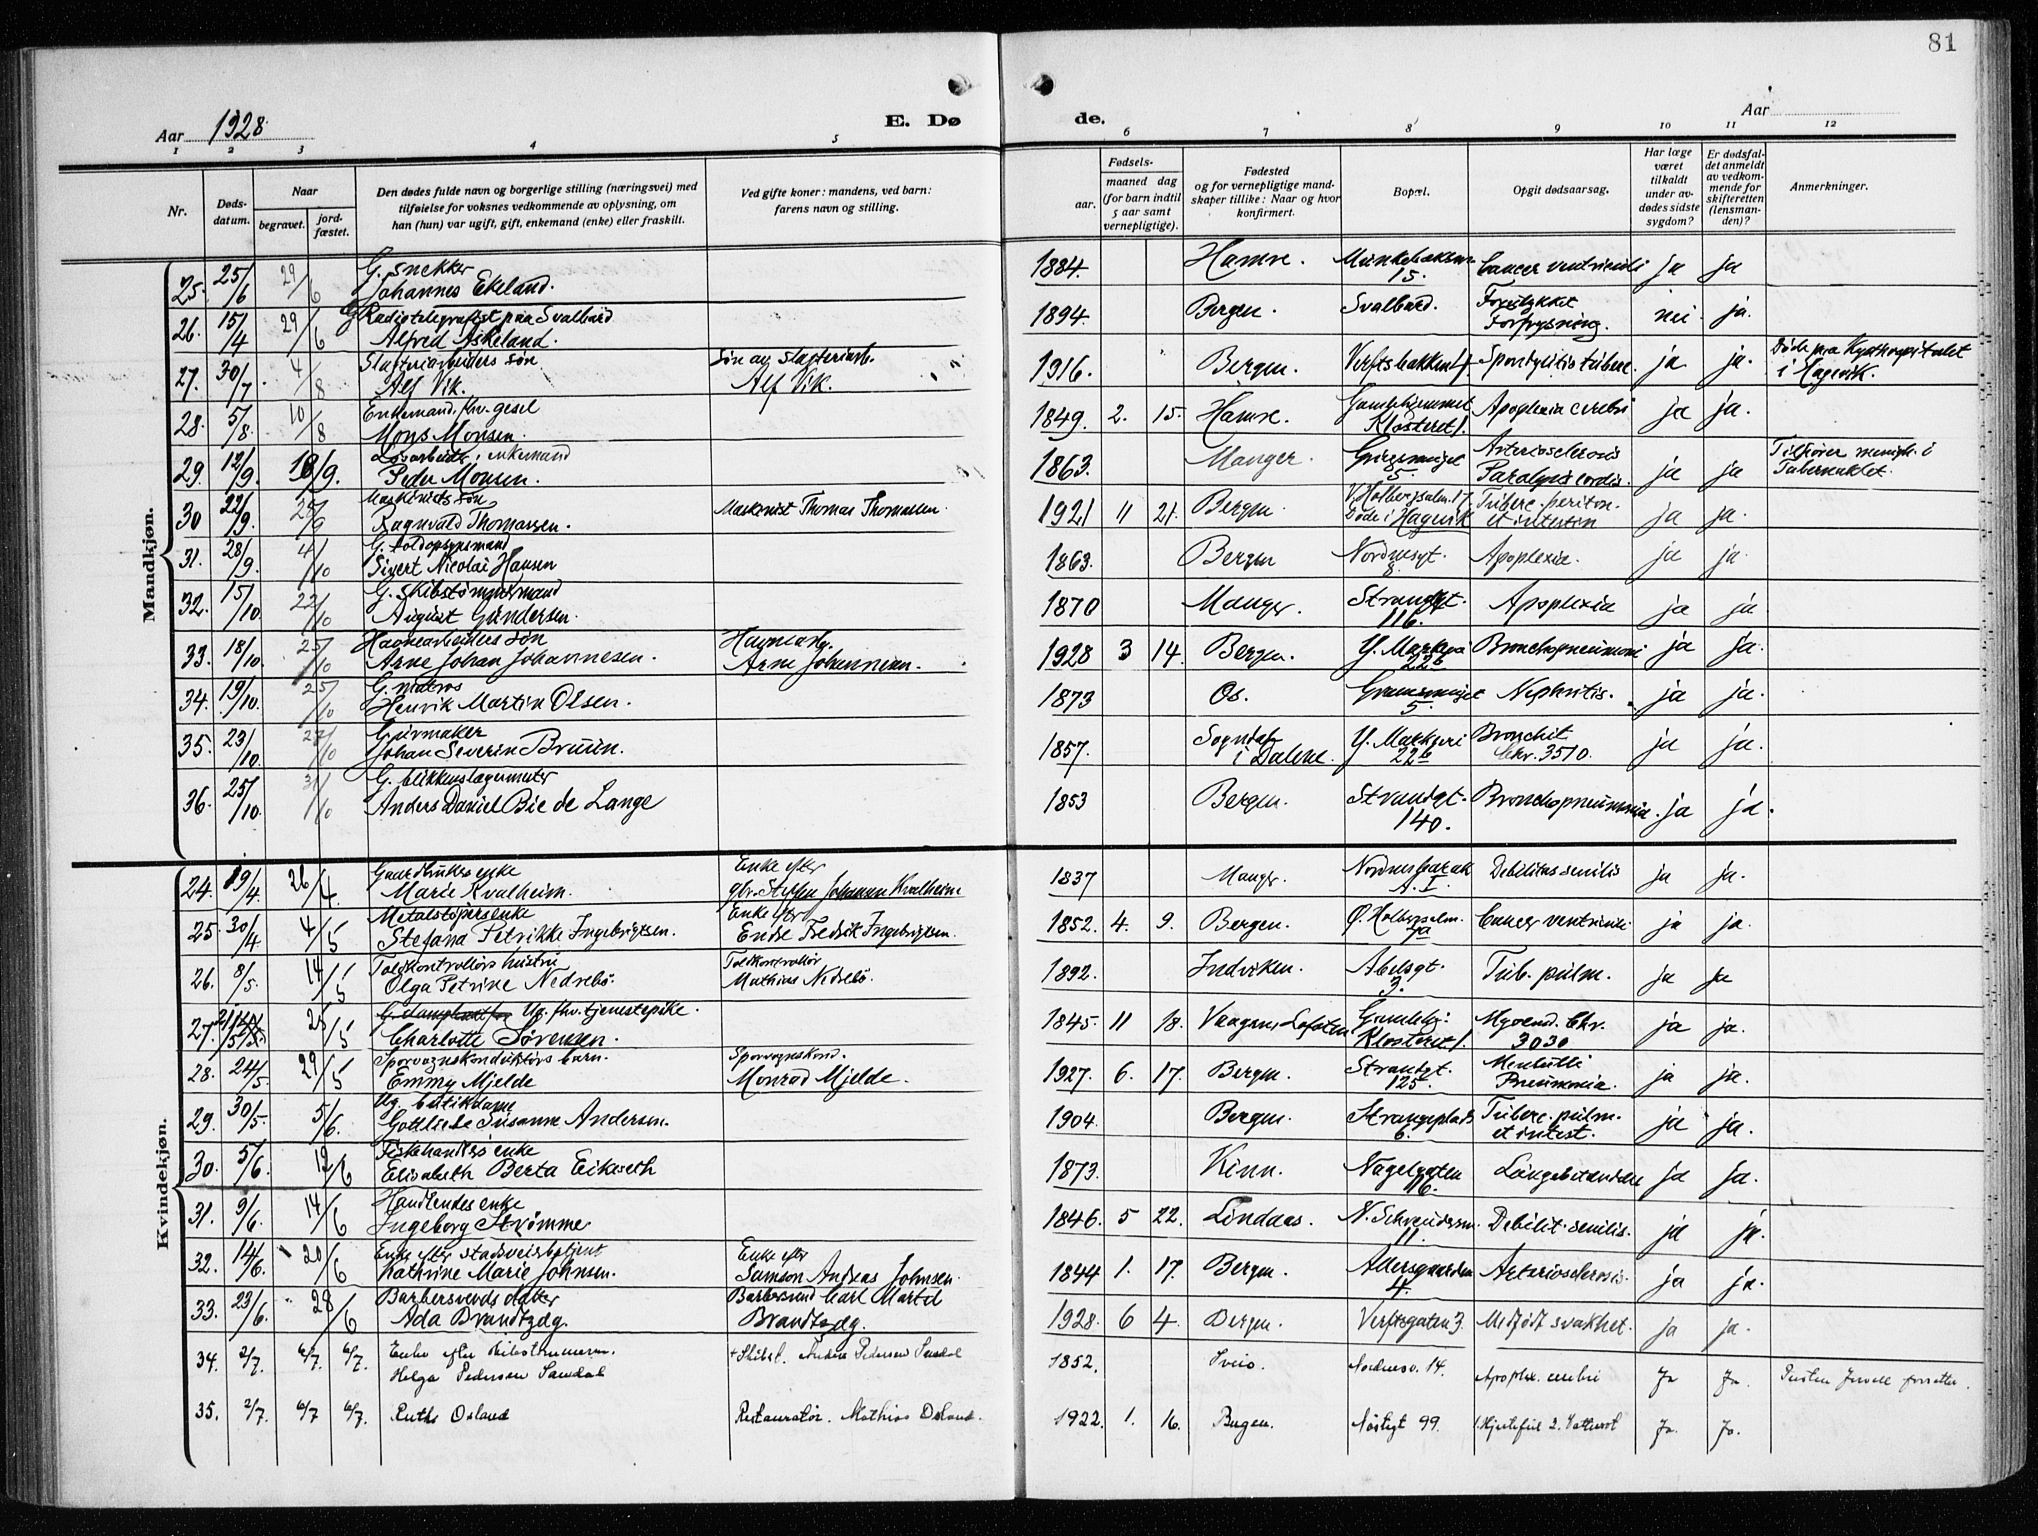 81
Aar 1928
E. Dø
de.
Aar
1 2 3 4 5 6 7 8 9 10 11 12
Nr.
Døds-
datum.
Naar
begravet.
jord-
fæstet.
Den dødes fulde navn og borgerlige stilling (næringsvei) med
tilføielse for voksnes vedkommende av oplysning, om
han (hun) var ugift, gift, enkemand (enke) eller fraskilt.
Ved gifte koner: mandens, ved barn:
farens navn og stilling.
Fødsels-
aar.
maaned dag
(for barn indtil
5 aar samt
vernepligtige).
Fødested
og for vernepligtige mand-
skaper tillike: Naar og hvor
konfirmert.
Bopæl.
Opgit dødsaarsag.
Har læge
været
tilkaldt
under av-
dødes sidste
sygdom?
Er dødsfal-
det anmeldt
av vedkom-
mende for
skifteretten
(lensman-
den)?
Anmerkninger.
Mandkjøn.
25. 25/6 29/6 G. snekker
Johannes Ekeland. 1884. Hamre. 15. Cancer ventriculi ja ja
26. 15/4 29/6 G. Radiotelegrafist paa Svalbard
Alfred Askeland. 1894. Bergen. Svalbard. Forulykket
Forfrysning. nei ja.
27. 30/7 4/8 Slagteriarbeiders søn
Alf Vik. Søn av slagteriarb.
Alf Vik. 1916. Bergen. Verftsbakken Spondylitis tuberc. ja ja. Døde paa Kysthospitalet
i Hagevik.
28. 5/8 10/8 Enkemand. fhv. gesel
Mons Monsen. 1849. 2. 15. Hamre. Gamlehjemmet
Klosteret 1. Apoplexia cerebri ja ja.
29. 12/9 18/9. Løsarbeider, enkemand
Peder Monsen. 1863. Manger. 5. Arterioschlerosis
Paralysis cordis. ja ja Tilhører menigh. i
Tabernaklet.
30 22/9. 25/9 Maskinists søn
Ragnvald Thomassen. Maskinist Thomas Thomassen. 1921 11 21. Bergen V. Holbergsalm. 17
Døde i Hagevik Tuberc. periton.
et intestin ja ja.
31. 28/9. 4/10 G. toldopsynsmand
Sivert Nicolai Hansen 1863. Bergen Nordnesgt.
8. Apoplexia. ja ja.
32. 15/10. 22/10 G. skibstømmermand
August Gundersen. 1870 Manger. Strandgt.
116. Apoplexia ja ja.
33. 18/10. 25/10 Havnearbeiders søn
Arne Johan Johannesen. Havnearb.
Arne Johannesen. 1928 3 14. Bergen. Y. Markvei
22b Bronchopneumoni ja ja.
34. 19/10. 25/10 G. matros
Henrik Martin Olsen. 1873 Os. 5. Nephritis. ja ja.
35. 23/10 27/10 Gjørmaker
Johan Severin Bruun. 1857. Sogndal
i Dalene. Y. Markvei
22b Bronchit
chr. 3510. ja ja.
36. 25/10. 31/10 G. blikkenslagermester
Anders Daniel Bie de Lange 1853 Bergen. Strandgt.
140. Bronchopneumonia. ja ja.
Kvindekjøn.
24. 19/4. 26/4. Gaardbrukers enke
Marie Kvalheim. Enke efter
gbr. Steffen Johannes Kvalheim 1837 Manger. A. I. Debilitas senilis ja ja.
25. 30/4 4/5 Metalstøpers enke
Stefana Petrikke Ingebrigtsen. Enke efter
Endre Fredrik Ingebrigtsen. 1852. 4. 9. Bergen. Ø. Holbergsalm.
7a Cancer ventriculi ja ja.
26. 8/5. 14/5 Toldkontrollørs hustru
Olga Petrine Nedrebø. Toldkontrollør
Mathias Nedrebø. 1892. Indviken. Abelsgt.
3. Tub. pulm. ja ja
27. 21/5 25/5 Ug. fhv. tjenestepike.
Charlotte Sørensen. 1845. 11 18. Vaagan, Lofoten Gamlehj.
Klosteret 1. Myocard. Chr.
3030 ja ja.
28. 24/5. 29/5 Sporvognskonduktørs barn.
Emmy Mjelde Sporvognskond.
Monrad Mjelde. 1927. 6. 17. Bergen. Strandgt.
125. Pneumonia. ja ja.
29. 30/5. 5/6. Ug. butikdame
Gottliebe Susanne Andersen. 1904. Bergen. Strangeplads
6. Tuberc. pulm.
et intest. ja ja.
30. 5/6. 12/6 Fiskehandlers enke
Elisabeth Berta Eikeseth 1873. Kinn. Nagelgaten
16. Lungebetændelse ja ja.
31. 9/6. 14/6 Handlendes enke
Ingeborg Strømme 1846. 5 22. Lindaas. 11. Debilit. senilis. ja ja.
32. 14/6. 20/6 Enke efter stadsveierbetjent
Kathrine Marie Johnsen. Enke efter
Samson Andreas Johnsen. 1844 1. 17. Bergen. 4. Arteriosclerosis. ja ja.
33. 23/6. 28/6 Barbersvends datter
Ada Brandtzæg. Barbersvend Carl Martil
Brandtzæg. 1928. 6 4. Bergen. Verftsgaten 3. Medfødt svakhet. ja ja.
34. 2/7. 6/7. 6/7. Enke efter skibstømmerm.
Helga Pedersen Sandal + Skibst. Anders Pedersen Sandal 1852. Sveio. Nordnesv. 14. Apoplex. cerebri Ja Ja.
35. 2/7. 6/7 6/7. Ruth Osland Restauratør. Mathias Osland. 1922. 1. 16. Bergen. Nøstegt 99. 1. Hjertefeil 2. Vattersot Ja. Ja.